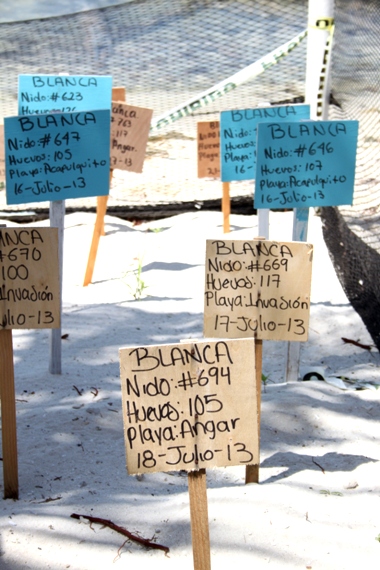 BLANCA
Nido:#623
BLANCA
Nido:#647
Huevos:105
Playa:Acapulquito
16-Julio-13
117
Angar
BLANCA
BLANCA
Nido:#646
Huevos:107
Playa:Acapulquito
16-Julio-13
#670
100
Invasión
BLANCA
Nido:#669
Huevos:117
Playa:Invasión
17-Julio-13
BLANCA
Nido:#694
Huevos:105
Playa:Angar
18-Julio-13